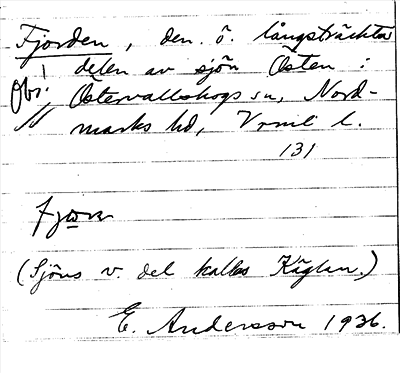 Fjorden, den ö. långsträckta
Obs! delen av sjön Östen i
Östervallskogs sn, Nord-
marks hd, Vrml l.
131
(Sjöns v. del kallas Käglan.)
E. Andersson 1936.